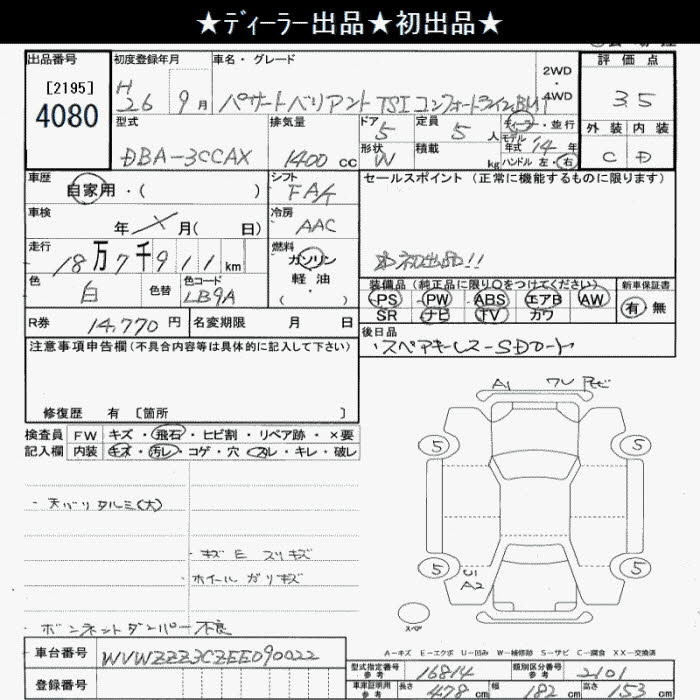 ★ディーラー出品★初出品★
出品番号
[2195]
4080
初度登録年月
H 26 9月
車名・グレード
パサートバリアント TSI コンフォートライン BMT
2WD
4WD
評価点
3.5
外装 内装
C D
型式
DBA-3CCAX
排気量
1400 cc
ドア 5
形状 W
定員 5 人
積載 kg
ディーラー・並行
モデル年式 14年
ハンドル 左・右
車歴
自家用・( )
シフト
FAT
セールスポイント (正常に機能するものに限ります)
初出品!!
車検
年 月( 日)
冷房
AAC
走行
18万7千911km
燃料
ガソリン
軽油
・( )
色
白
色替
色コード
LB9A
装備品 (純正品に限り○をつけてください)
PS PW ABS エアB AW
SR ナビ TV カワ
新車保証書
有 無
R券 14,770円
名変期限 月 日
後日品
・スペアキーレスーSDカード
注意事項申告欄(不具合内容等は具体的に記入して下さい)
修復歴 有 〔箇所 〕
検査員記入欄
FW キズ・飛石・ヒビ割・リペア跡・×要
内装 キズ・汚レ・コゲ・穴・スレ・キレ・破レ
・天バリタルミ(大)
・キズ E スリキズ
・ホイールガリキズ
・ボンネットダンパー不良
A1 ワレ
5 5
5 5
U1
A2
スペア
A-キズ E-エクボ U-凹み W-補修跡 S-サビ C-腐食 XX-交換済
車台番号
WVWZZZ3CZEE090022
登録番号
型式指定番号 参考 16814
類別区分番号 参考 2101
車庫証明用 参考 長さ 478 cm 幅 182 cm 高さ 153 cm